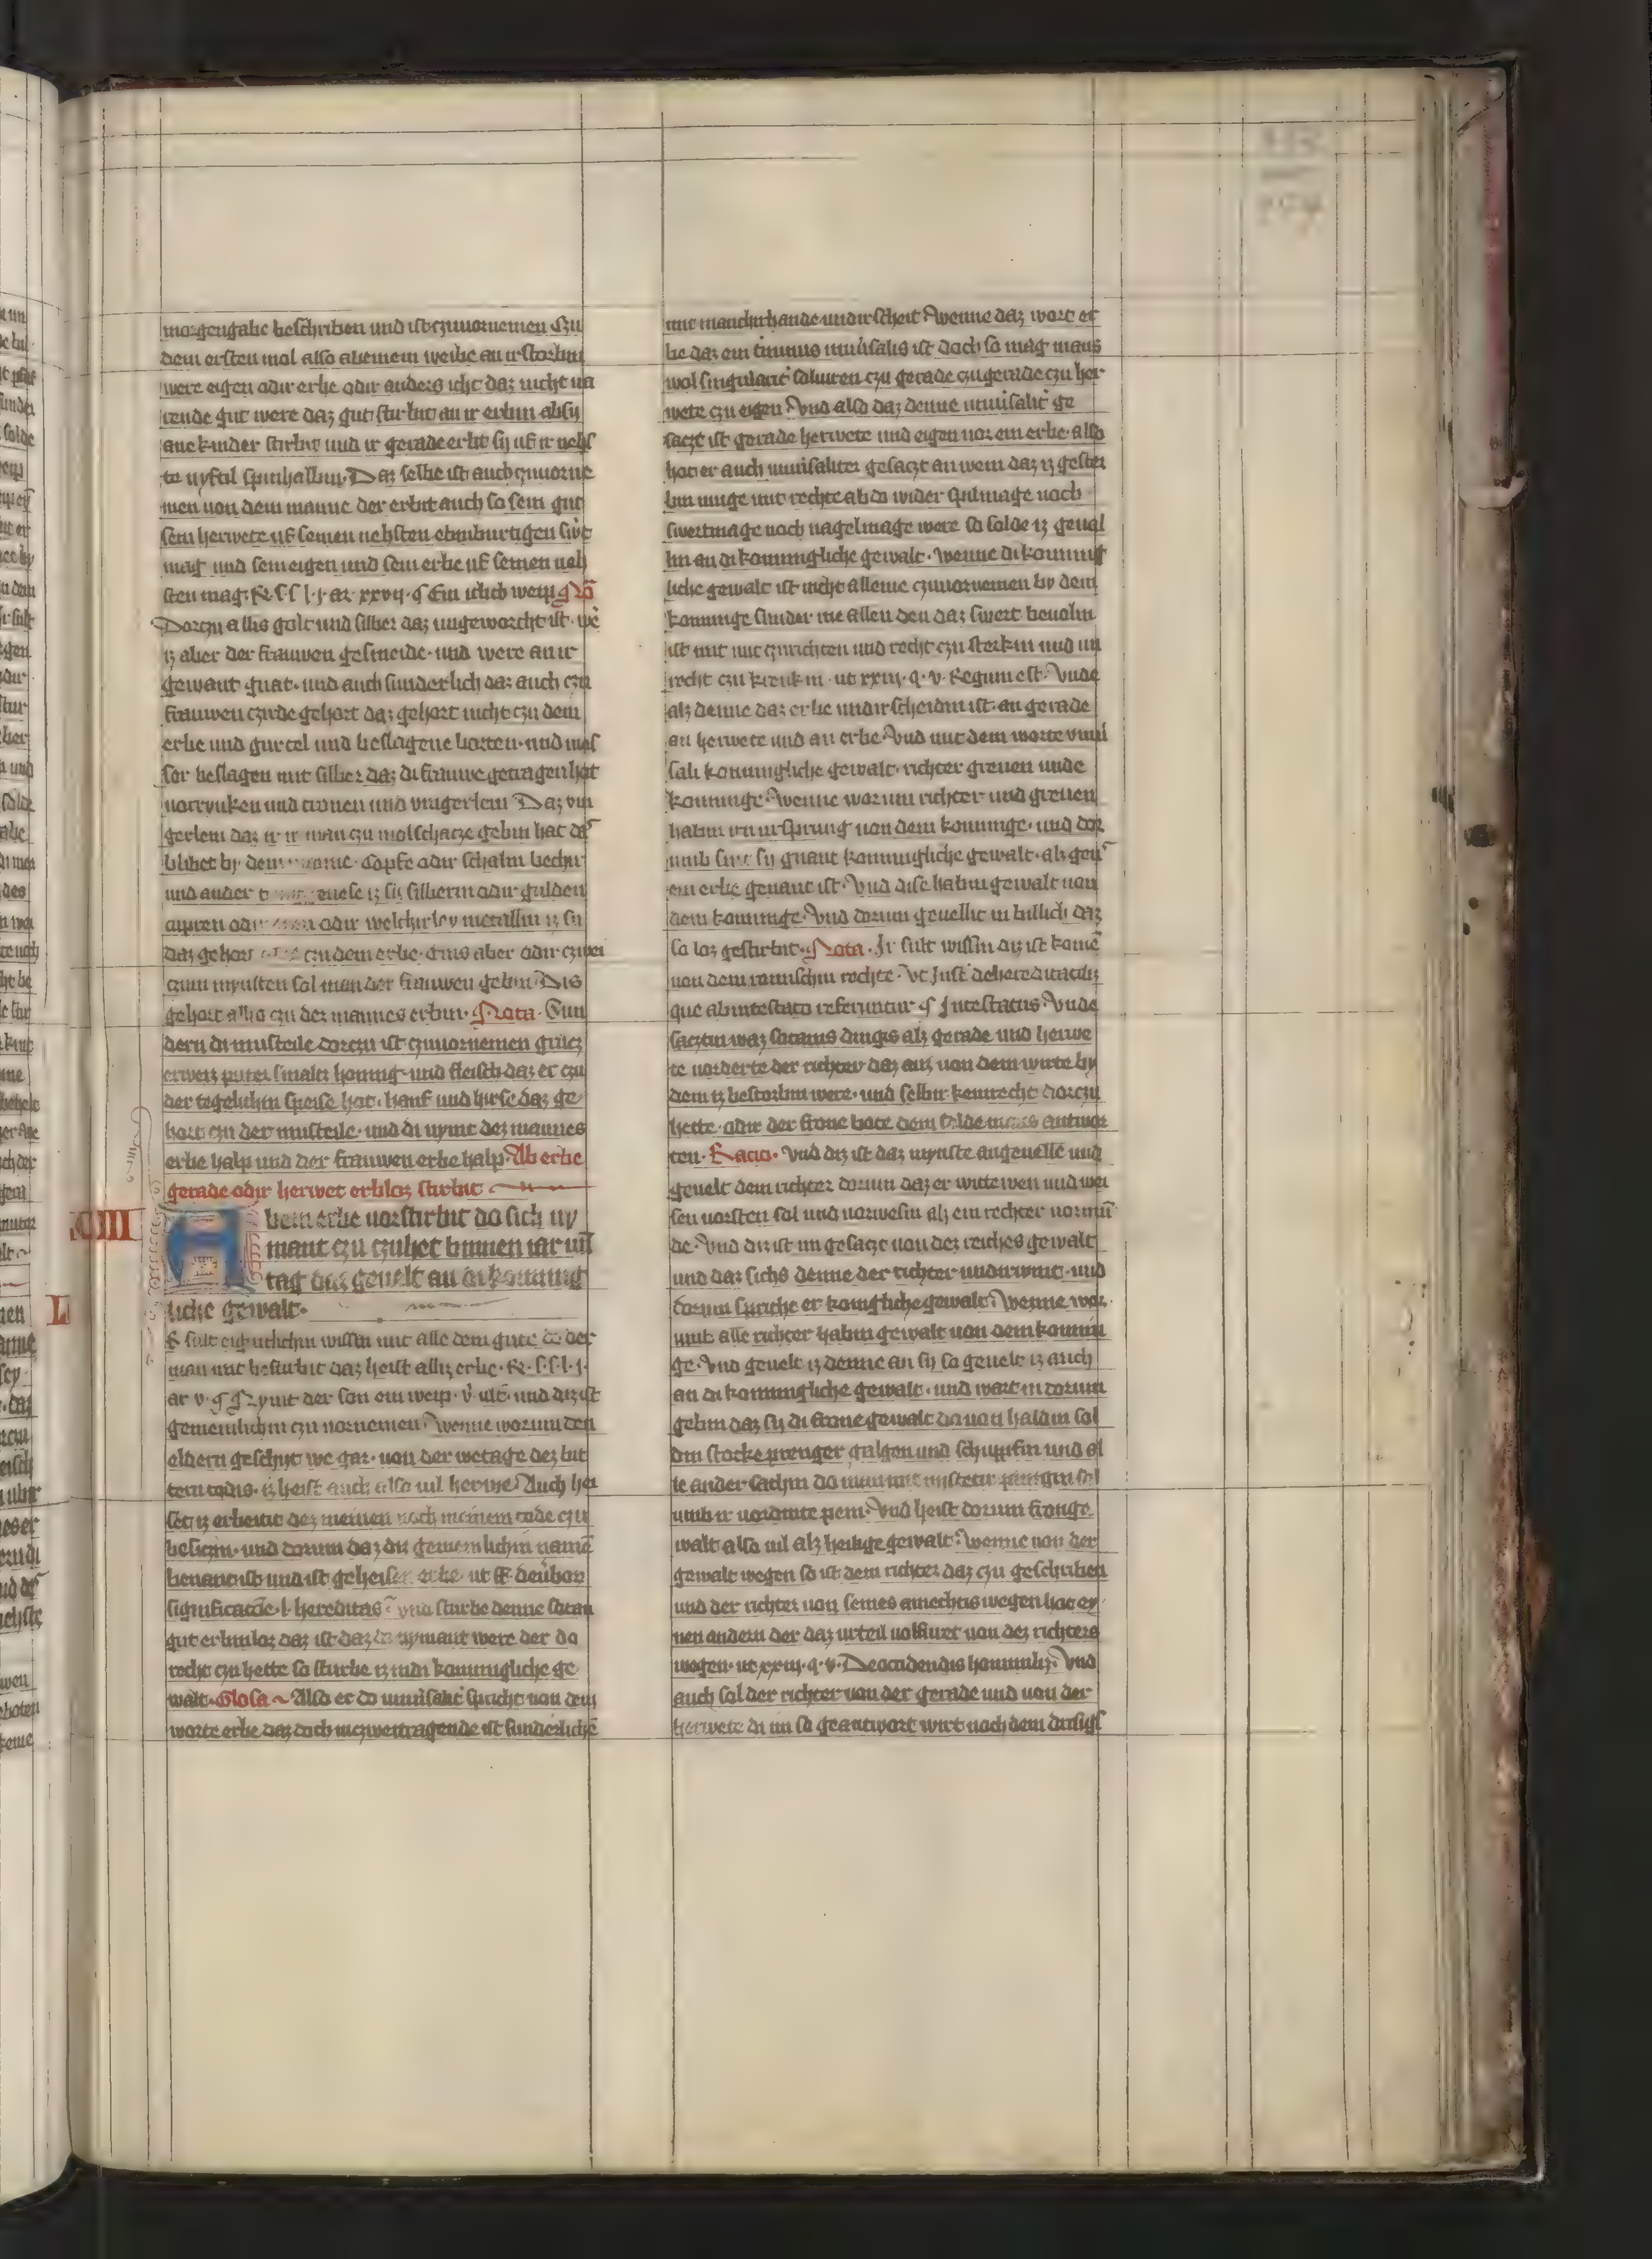 morgengabe beschriben und ist czuuornemen Czu
dem ersten mol also ab einem weibe an irstorbin
were eigen odir erbe odir anders icht daz nicht va
rende gut were daz gut stirbit an ir erbin ab sy
ane kinder stirbit und ir gerade erbit sy uf ir nehs
te nyftil spinhalbin. Daz selbe ist auch czuuorne
men uon dem manne der erbit auch so sein gut
sein herwete uf seinen nehsten ebinburtigen swt
mag und sein eigen und sein erbe uf seinen neh
sten mag. R. l. j. ar. xxvij. § Ein iclich weip No
Dorczu allis golt und silber daz ungeworcht ist. we
iz aber der frauwen gesmeide. und were an ir
gewant gnat. und auch sunderlich daz auch czu
frauwen czirde gehort daz gehort nicht czu dem
erbe und gurtel und beslagene borten. und mes
ser beslagen mit silber daz di frauwe getragen hat
uorrynken und cronen und vingerlein Daz vin
gerlein daz ir ir man czu molschacze gebin hat das
blibet by dem name. Copfe odir schaln bechir
und ander uese iz sy silberin odir guldin
cupren odir odir welchirley metallin iz sy
daz gehort czu dem erbe. eins aber odir czwei
czum mynsten sal man der frauwen gebin. Dis
gehort allis czu dez mannes erbin. Nota. Sun
dern di musteile dorczu ist czuuornemen grucz
erweiz puter smalcz honing. und fleisch daz er czu
der tegelichin speise hat. hanf und hirse daz ge
hort czu der musteile. und di nymt dez mannes
erbe halp und der frauwen erbe halp. Ab erbe
gerade odir herwet erblos stirbit
XIII
Ab ein erbe uorstirbit do sich ny
mant czu czuhet binnen iar un
tag daz geuelt an di koning
liche gewalt.
Ir sult eigintlichin wissen mit alle dem gute do der
man mit bestirbit daz heist alliz erbe. R. l. j.
ar v. § Nymt der son ein weip. v. ult. und diz ist
gemeinlichin czu uornemen. Wenne worum den
eldern geschyt we gar. uon der wetage dez bit
tern todis. iz heist auch also uil herwe. Auch hei
set iz erbe dez meinen noch meinem tode czu
besiczin. und dorum daz diz gemeinlichin name
benant ist und ist geheisen erbe ut ff de uerbor
significatione. l. hereditas. und sturbe denne sotan
gut erbinlos daz ist daz do nymant were der do
recht czu hette so sturbe iz in di koningliche ge
walt. Glosa Also er do uniuersalit spricht uon dem
worte erbe daz doch inczwertragende ist sunderliche
mit mancherhande undirscheit. Wenne daz wort er
be daz ein terminus uniuersalis ist doch so mag mans
wol singularit soluiren czu gerade czu gerade czu her
wete czu eigen. Vnd also daz denne uniuersalit ge
saczt ist gerade herwete und eigen uor ein erbe. also
hot er auch uniuersaliter gesaczt an wem daz iz gester
bin muge mit rechte ab do wider spilmage noch
swertmage noch nagelmage were so solde iz geual
lin an di koningliche gewalt. Wenne di koning
liche gewalt ist nicht alleine czuuornemen by dem
koninge sunder me allen den daz swert beuoln
ist mit mit czurichten und recht czu sterkin und un
recht czu krenkin. ut xxiij. q. v. Regum est. Vnde
als denne daz erbe undirscheidin ist. an gerade
an herwete und an erbe. Vnd mit dem worte vniu
sali koningliche gewalt. richter greuen unde
koninge. Wenne worum richter und greuen
habin irn ursprung uon dem koninge. und dor
umb sint sy gnant koningliche gewalt. als gen
ein erbe genant ist. Vnd dise habin gewalt uon
dem koninge. Vnd dorum geuellit in billich daz
so los gestirbit. Nota. Ir sult wissin diz ist kome
uon dem romischin rechte. Vt Inst de hereditatibz
que ab intestato referuntur § Intestatus. Vnde
sacztin waz sotanis dingis als gerade und herwe
te uorderte der richter daz auz uon dem wirte by
dem iz bestorbin were. und selbir kein recht dorczu
hette. odir der frone bote dem solde mans antwor
ten. Racio. Vnd diz ist daz mynste angeuelle und
geuelt dem richter dorum daz er wittewen und wei
sen uorsten sol und uorwesin als ein rechter uormun
de. Vnd diz ist im gesaczt uon dez reiches gewalt
und daz sichs denne der richter undirwint. und
dorum spriche er koningliche gewalt. Wenne wor
umb alle richter habin gewalt uon dem konin
ge. Vnd geuelt iz denne an sy so geuelt iz auch
an di koningliche gewalt. und wart in dorum
gebin daz sy di frone gewalt do uon haldin sol
din stocke prenger galgen und schuppfin und al
le ander sachin do man mit mistetir pinigin sol
umb ir uordinte pein. Vnd heist dorum fronge
walt also uil als heilige gewalt. Wenne uon der
gewalt wegen so ist dem richter daz czu geschriben
und der richter uon seines amechtis wegen hat ey
nen andern der daz urteil uolfuret uon dez richters
wegen. ut xxiij. q. v. De occidendis hominibz. Vnd
auch sol der richter uon der gerade und uon der
herwete di im so geantwort wirt noch dem drisigs